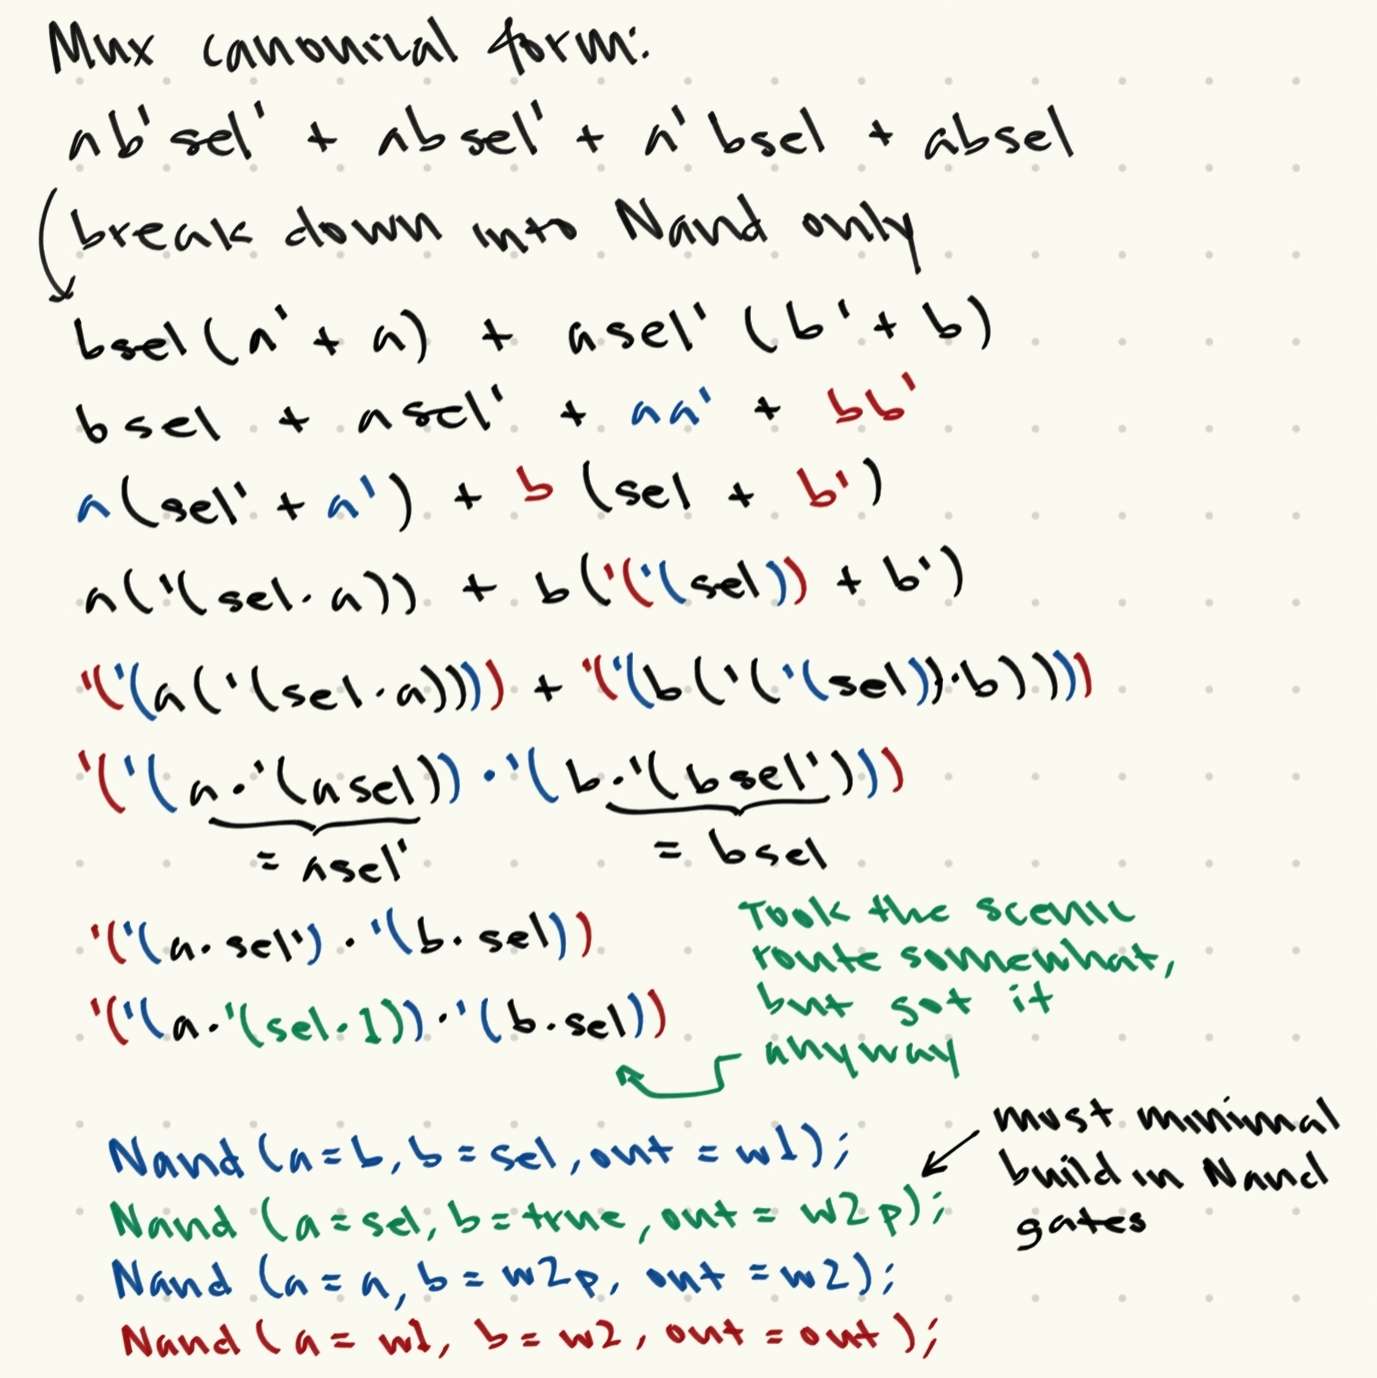 Mux canonical form:
ab'sel' + absel' + a'bsel + absel
break down into Nand only
bsel(a' + a) + asel'(b' + b)
bsel + asel' + aa' + bb'
a(sel' + a') + b(sel + b')
a('(sel·a)) + b('('(sel)) + b')
'('(a('(sel·a)))) + '('(b('('(sel))·b))))
'('(a·'(asel))·'(b·'(bsel')))
= asel'
= bsel
'('(a·sel')·'(b·sel))
'('(a·'(sel·1))·'(b·sel))
Took the scenic
route somewhat,
but got it
anyway
must minimal
build in Nand
gates
Nand (a=b, b=sel, out = w1);
Nand (a=sel, b=true, out = w2p);
Nand (a = a, b = w2p, out = w2);
Nand (a = w1, b = w2, out = out);